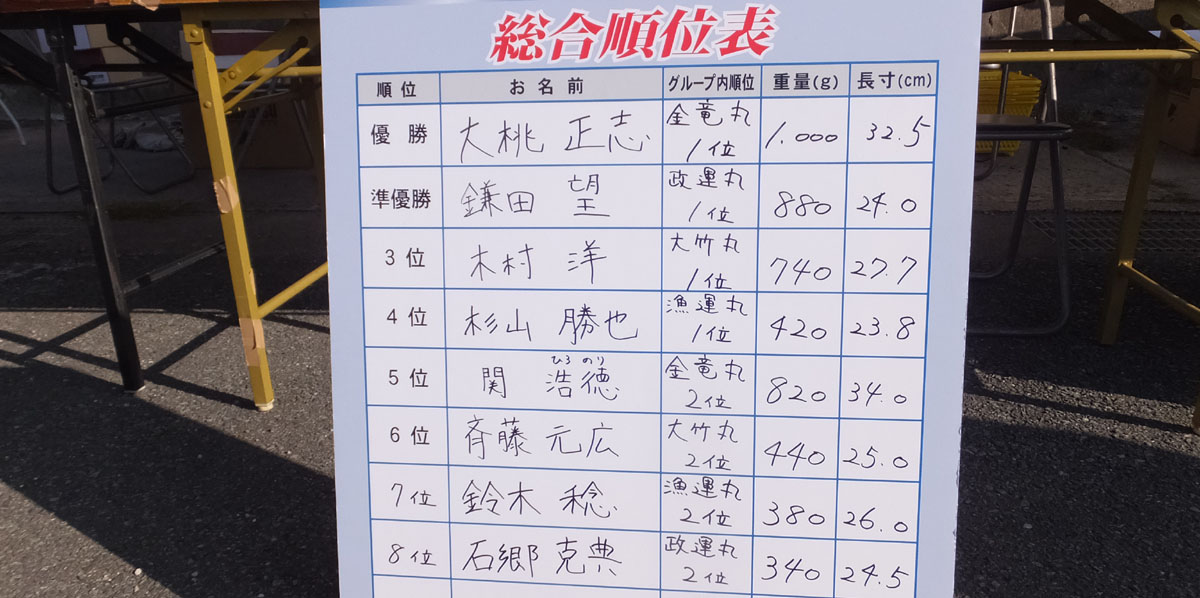 総合順位表
順位 お名前 グループ内順位 重量(g) 長寸(cm)
優勝 大桃 正志 金竜丸 1位 1.000 32.5
準優勝 鎌田 望 政運丸 1位 880 24.0
3位 木村 洋 大竹丸 1位 740 27.7
4位 杉山 勝也 漁運丸 1位 420 23.8
5位 関 浩徳 ひろ のり 金竜丸 2位 820 34.0
6位 斉藤 元広 大竹丸 2位 440 25.0
7位 鈴木 稔 漁運丸 2位 380 26.0
8位 石郷 克典 政運丸 2位 340 24.5